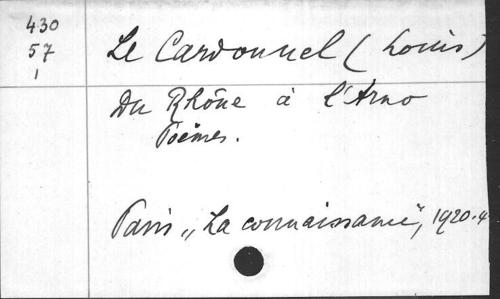 430
57
1
Le Cardonnel (Louis)
Du Rhône à l'Arno
Poèmes.
Paris „La connaissance", 1920. 4